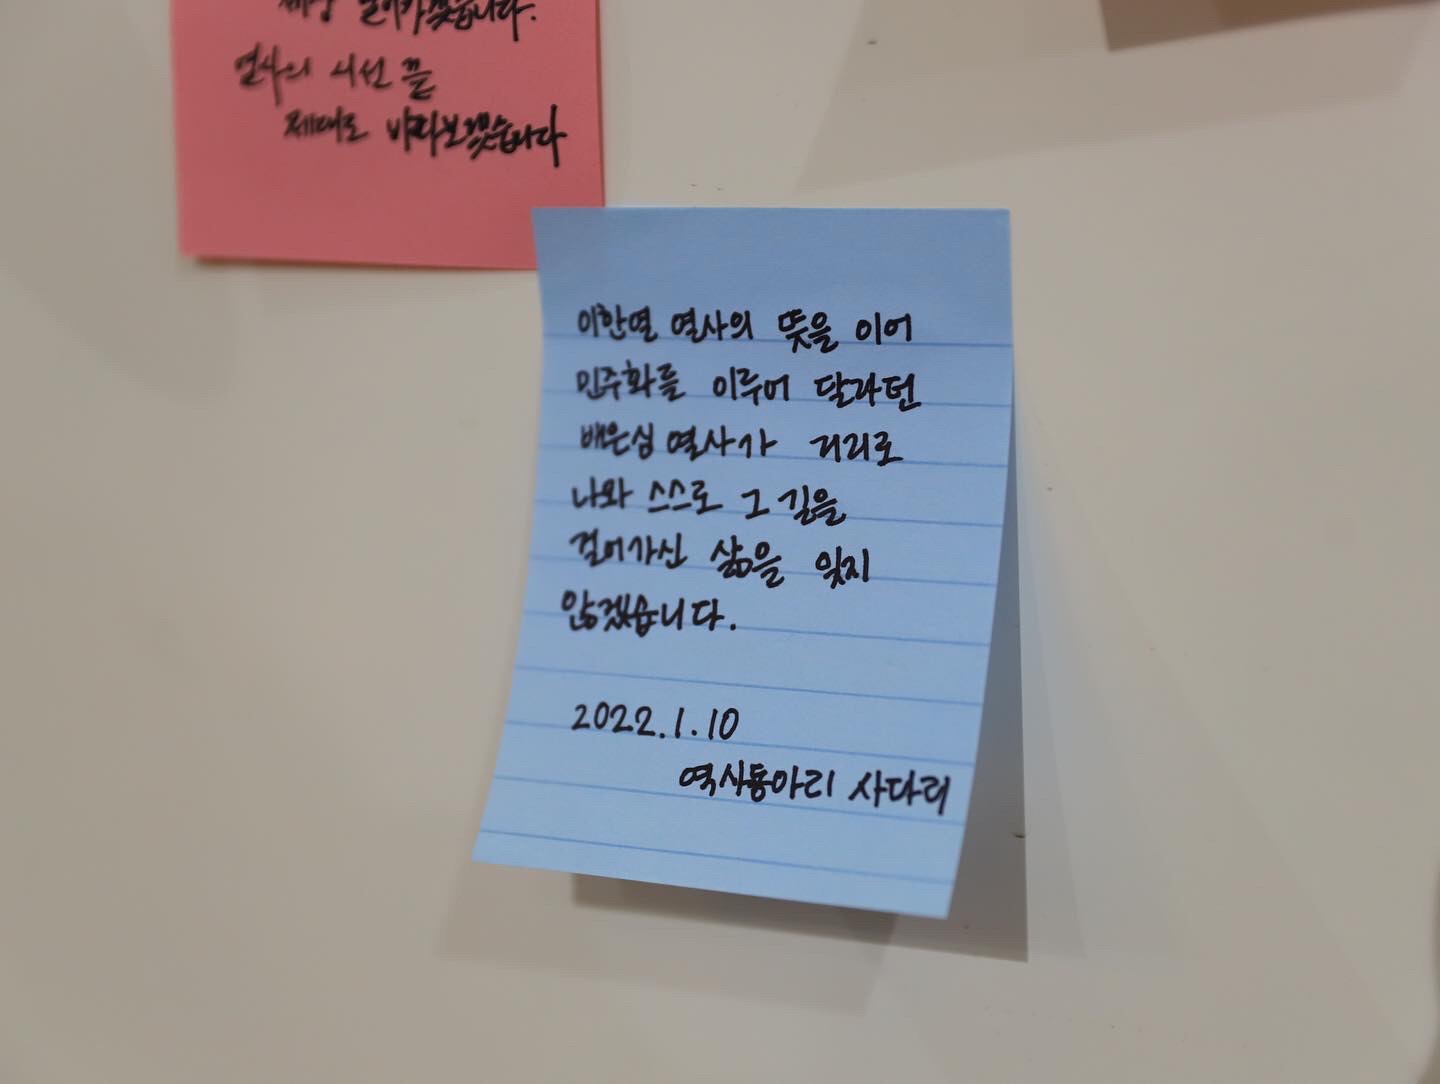 열사의 시선 끝
제대로 바라보겠습니다
이한열 열사의 뜻을 이어
민주화를 이루어 달라던
배은심 열사가 거리로
나와 스스로 그 길을
걸어가신 삶을 잊지
않겠습니다.
2022.1.10
역사동아리 사다리